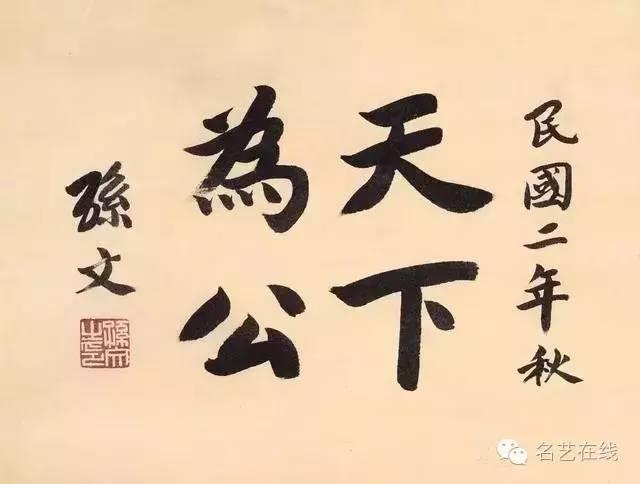 民國二年秋
天下
為公
孫文
孫文之印
名艺在线